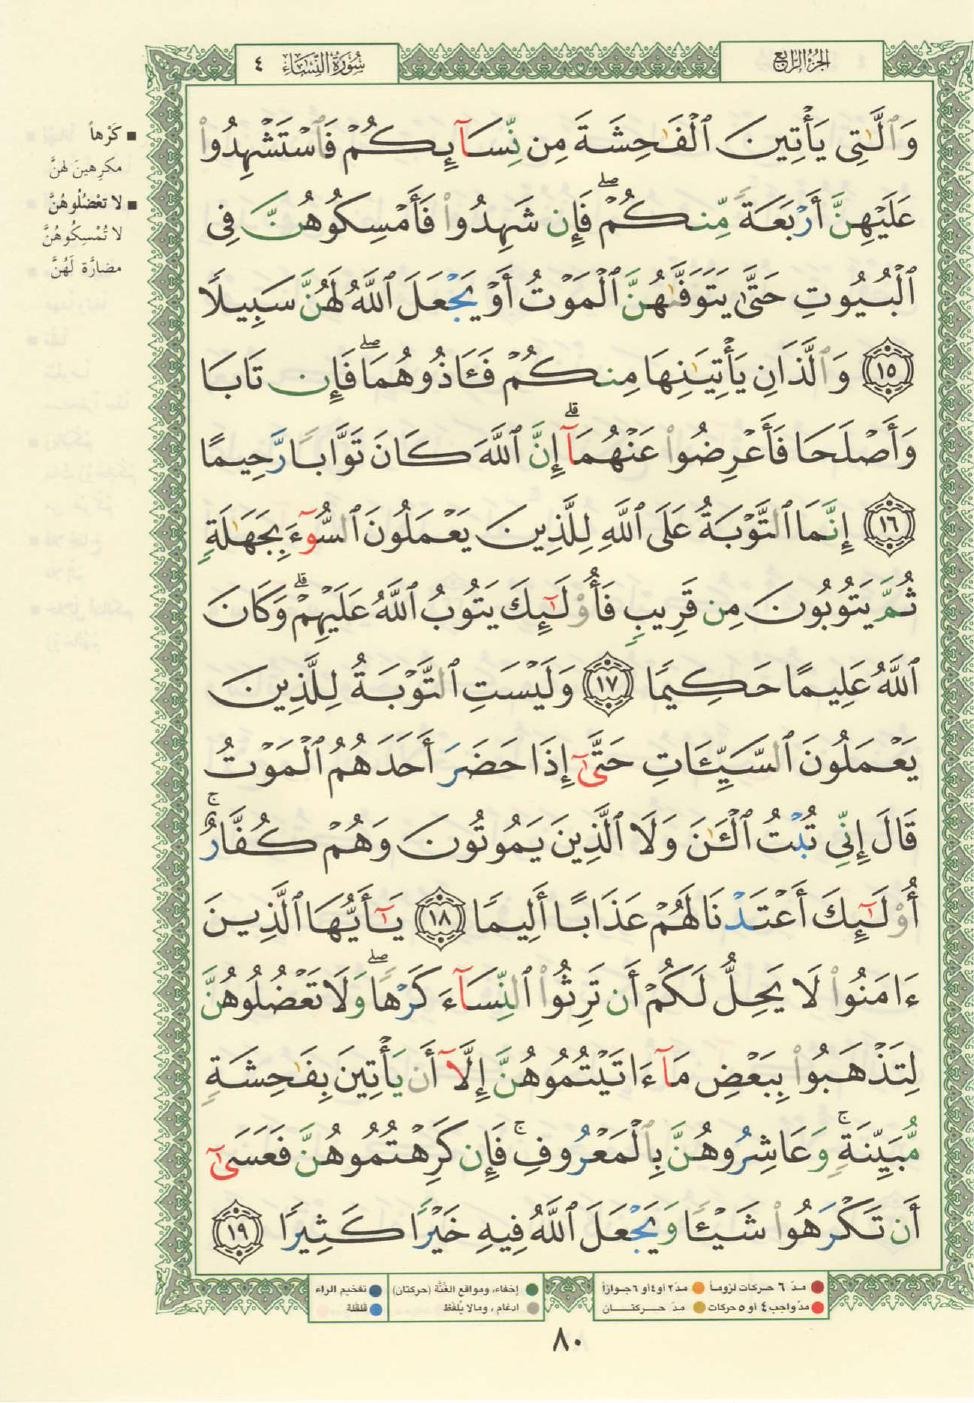 الجزء الرابع
سُورَةُ النِّسَاء ٤
وَٱلَّٰتِى يَأْتِينَ ٱلْفَٰحِشَةَ مِن نِّسَآئِكُمْ فَٱسْتَشْهِدُوا۟
عَلَيْهِنَّ أَرْبَعَةً مِّنكُمْ ۖ فَإِن شَهِدُوا۟ فَأَمْسِكُوهُنَّ فِى
ٱلْبُيُوتِ حَتَّىٰ يَتَوَفَّىٰهُنَّ ٱلْمَوْتُ أَوْ يَجْعَلَ ٱللَّهُ لَهُنَّ سَبِيلًا
١٥ وَٱلَّذَانِ يَأْتِيَٰنِهَا مِنكُمْ فَـَٔاذُوهُمَا ۖ فَإِن تَابَا
وَأَصْلَحَا فَأَعْرِضُوا۟ عَنْهُمَآ ۗ إِنَّ ٱللَّهَ كَانَ تَوَّابًا رَّحِيمًا
١٦ إِنَّمَا ٱلتَّوْبَةُ عَلَى ٱللَّهِ لِلَّذِينَ يَعْمَلُونَ ٱلسُّوٓءَ بِجَهَٰلَةٍ
ثُمَّ يَتُوبُونَ مِن قَرِيبٍ فَأُو۟لَٰٓئِكَ يَتُوبُ ٱللَّهُ عَلَيْهِمْ ۗ وَكَانَ
ٱللَّهُ عَلِيمًا حَكِيمًا ١٧ وَلَيْسَتِ ٱلتَّوْبَةُ لِلَّذِينَ
يَعْمَلُونَ ٱلسَّيِّـَٔاتِ حَتَّىٰٓ إِذَا حَضَرَ أَحَدَهُمُ ٱلْمَوْتُ
قَالَ إِنِّى تُبْتُ ٱلْـَٰٔنَ وَلَا ٱلَّذِينَ يَمُوتُونَ وَهُمْ كُفَّارٌ ۚ
أُو۟لَٰٓئِكَ أَعْتَدْنَا لَهُمْ عَذَابًا أَلِيمًا ١٨ يَٰٓأَيُّهَا ٱلَّذِينَ
ءَامَنُوا۟ لَا يَحِلُّ لَكُمْ أَن تَرِثُوا۟ ٱلنِّسَآءَ كَرْهًا ۖ وَلَا تَعْضُلُوهُنَّ
لِتَذْهَبُوا۟ بِبَعْضِ مَآ ءَاتَيْتُمُوهُنَّ إِلَّآ أَن يَأْتِينَ بِفَٰحِشَةٍ
مُّبَيِّنَةٍ ۚ وَعَاشِرُوهُنَّ بِٱلْمَعْرُوفِ ۚ فَإِن كَرِهْتُمُوهُنَّ فَعَسَىٰٓ
أَن تَكْرَهُوا۟ شَيْـًٔا وَيَجْعَلَ ٱللَّهُ فِيهِ خَيْرًا كَثِيرًا ١٩
■ كَرْهاً
مكرهينَ لهنَّ
■ لا تعْضُلُوهُنَّ
لا تُمْسِكُوهُنَّ
مضارَّة لَهُنَّ
مدّ ٦ حركات لزوماً ● مدّ ٢ أو ٤ أو ٦ جوازاً
مدّ واجب ٤ أو ٥ حركات ● مدّ حركتان
إخفاء، ومواقع الغُنَّة (حركتان)
ادغام، ومالا يُلفَظ
تفخيم الراء
قلقلة
٨٠